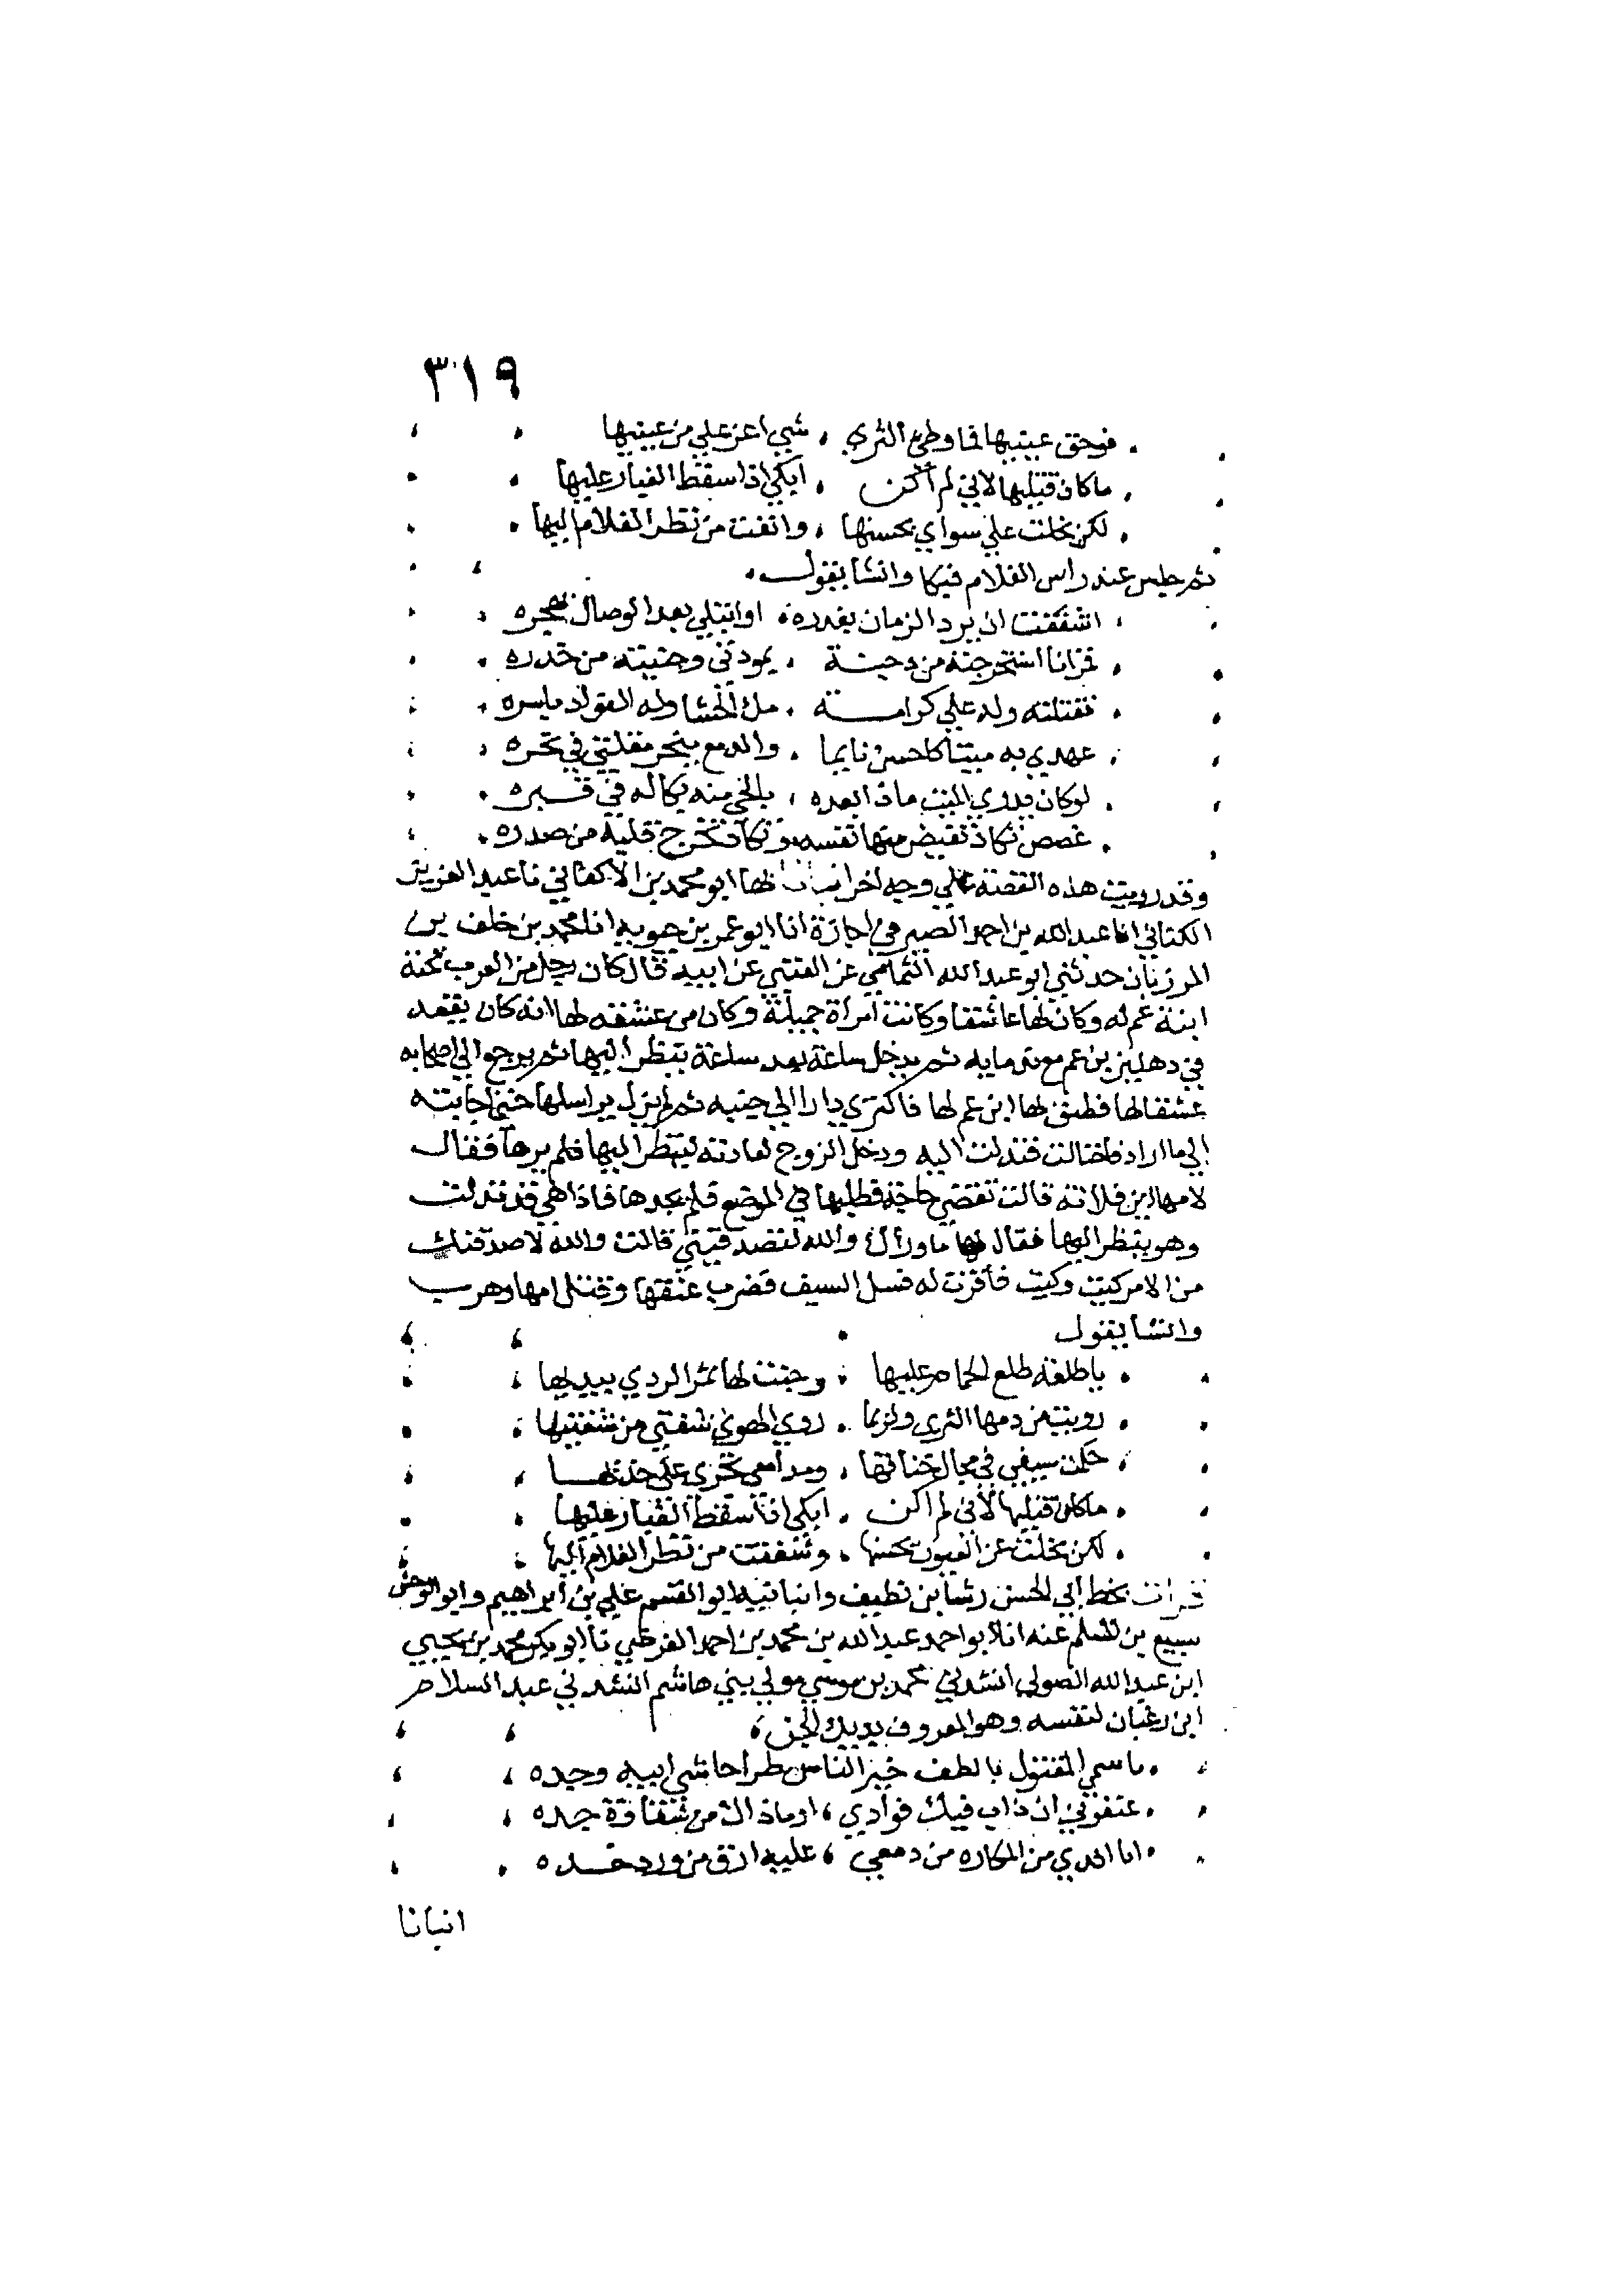 ٣١٩
فوحق عينيها فما وطئ الثري شيي اعز علي من عينيها
ما كان قتليها لاني لم أكن ابكي اذا سقط الغبار عليها
لكن بخلت علي سواي بحسنها وانفت من نظر الغلام اليها
ثم جلس عند راس الغلام فبكا وانشا يقول
اشفقت ان يرد الزمان بغدره او ابتلي بعد الوصال بهجره
قمرا انا استخرجته من دجنة بمودتي وجنيته من خدره
فقتلته وله علي كرامة مل الحشا وله الفواد باسره
عهدي به ميتا كاحسن نايما والدمع ينحر مقلتي في نحره
لو كان يدري الميت ماذا بعده بالحي منه بكا له في قبره
غصص تكاد تفيض منها نفسه وتكاد تخرج قلبه من صدره
وقد رويت هذه القصة علي وجه اخر انبانا بها ابو محمد بن الاكفاني نا عبد العزيز
الكتاني انا عبد الله بن احمد الصيرفي اجازة انا ابو عمر بن حيويه انا محمد بن خلف بن
المرزبان حدثني ابو عبد الله الثمامي عن العتبي عن ابيه قال كان رجل من العرب تحته
ابنة عم له وكان لها عاشقا وكانت امراة جميلة وكان من عشقه لها انه كان يقعد
في دهليز بن عم مع ندمايه ثم يدخل ساعة بعد ساعة ينظر اليها ثم يرجع الي اصحابه
عشقا لها فطبن لها ابن عم لها فاكتري دارا الي جنبه ثم لم يزل يراسلها حتي اجابته
الي ما اراد فاحتالت فتدلت اليه ودخل الزوج لعادته لينظر اليها فلم يرها فقال
لامها اين فلانة قالت تقضي حاجة فطلبها في الموضع فلم يجدها فاذا هي قد تدلت
وهو ينظر اليها فقال لها ما وراك والله لتصدقيني قالت والله لاصدقنك
من الامر كيت وكيت فأقرت له فسل السيف فضرب عنقها وقتل امها وهرب
وانشا يقول
يا طلعة طلع الحمام عليها وجنت لها ثمر الردي بيديها
رويت من دمها الثري ولربما روي الهوي شفتي من شفتيها
حكمت سيفي في مجال خناقها ومدامعي تجري علي خديها
ما كان قتليها لأني لم اكن ابكي اذا سقط الغبار عليها
لكن بخلت عن العيون بحسنها وشفقت من نظر الغلام اليها
قرات بخط أبي الحسن رشا بن نظيف وانبانيه ابو القسم علي بن ابراهيم وابو الوحش
سبيع بن المسلم عنه انا ابو احمد عبيد الله بن محمد بن احمد الفرضي نا ابو بكر محمد بن يحيي
ابن عبد الله الصولي انشدني محمد بن موسي مولي بني هاشم انشدني عبد السلام
ابن رغبان لنفسه وهو المعروف بديك الجن
با سمي المقتول بالطف خير الناس طرا حاشي ابيه وجده
عنفوني ان ذاب فيك فوادي او ماذاك من شقاوة جده
انا افدي من المكاره من دمعي عليه ارق من ورد خده
انبانا